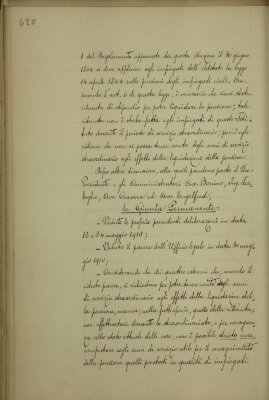 620
1 del Regolamento approvato da questo Regime il 30 giugno
1904 si deve applicare agli impiegati dell'istituto la legge
14 aprile 1864 sulle pensioni degli impiegati civili. Ora,
secondo l'art. 6 di questa legge, è necessario che siasi data
ritenuta di stipendio per poter liquidare la pensione; tale
ritenuta non è stata fatta agli impiegati di questo Isti-
tuto durante il periodo di servizio straordinario; perciò egli
ritiene che non si possa tener conto degli anni di servizio
straordinario agli effetti della liquidazione della pensione.
Dopo altra discussione, alla quale prendono parte il Pre-
sidente e gli Amministratori Cav.
la Giunta Permanente
- Vedute le proprie precedenti deliberazioni in data
12 e 04 maggio 1910;
- Veduto il parere dell'Ufficio legale in data 30 mag-
gio 1910;
- Considerando che dei quattro estremi che, secondo il
citato parere, si richiedono per poter tener conto degli anni
di servizio straordinario agli effetti della liquidazione del-
la pensione, manca, nella fattispecie, quello della ritenuta,
non effettuatasi durante lo straordinariato, e per conseguen-
za allo stato attuale delle cose, non è possibile
computare negli anni di servizio utile per il conseguimento
della pensione quelli prestati in qualità di impiegati